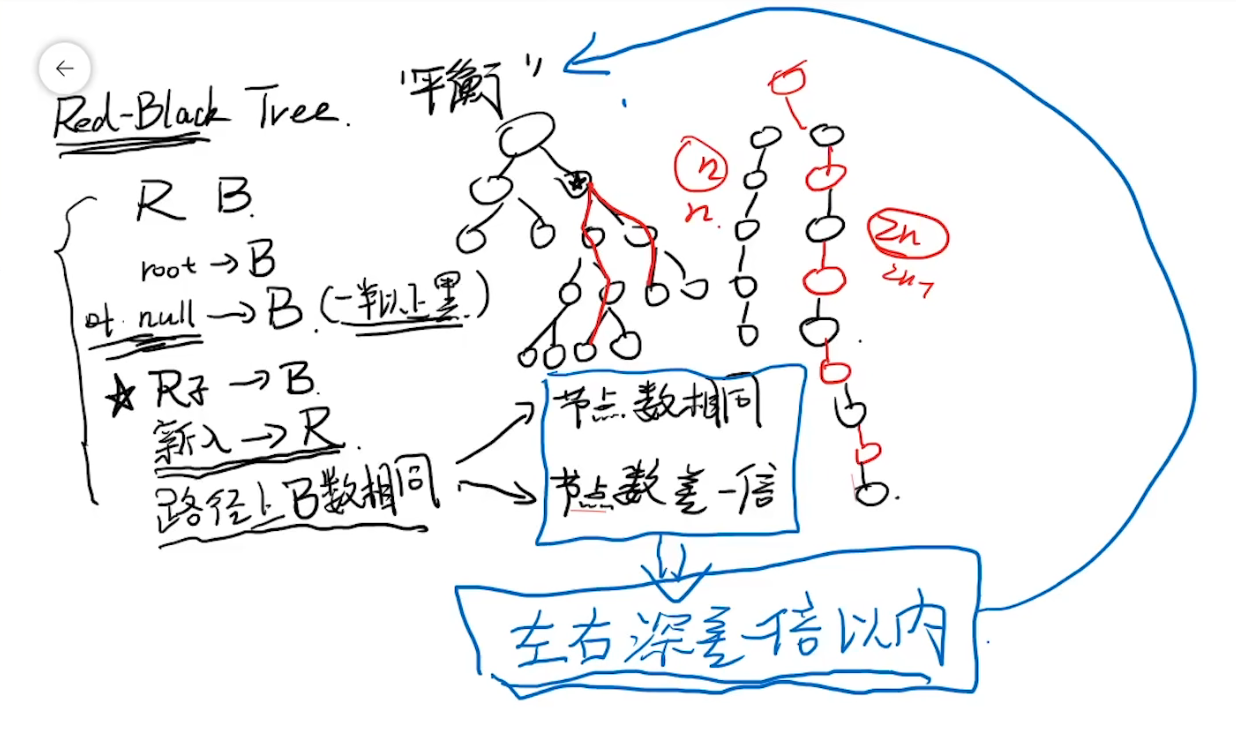 Red-Black Tree.
"平衡"
R B.
root → B
叶 null → B. (一半以上黑)
☆ R子 → B.
新入 → R.
路径上B数相同
n
n.
2n
节点数相同
节点数差一倍
左右深差一倍以内